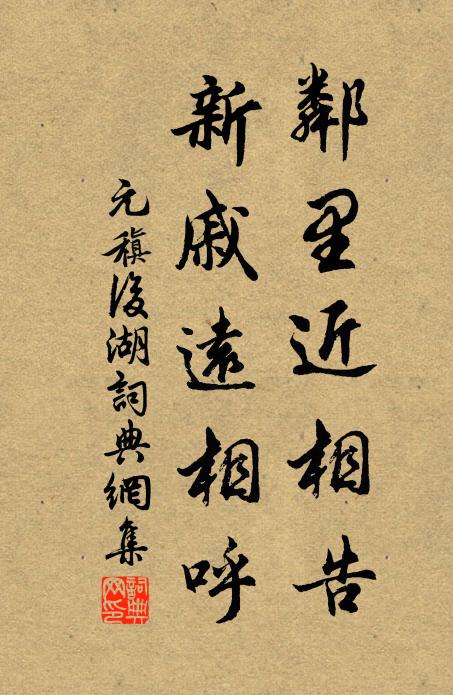 鄰里近相告
新戚遠相呼
元稹後湖詞典網集
詞典网印